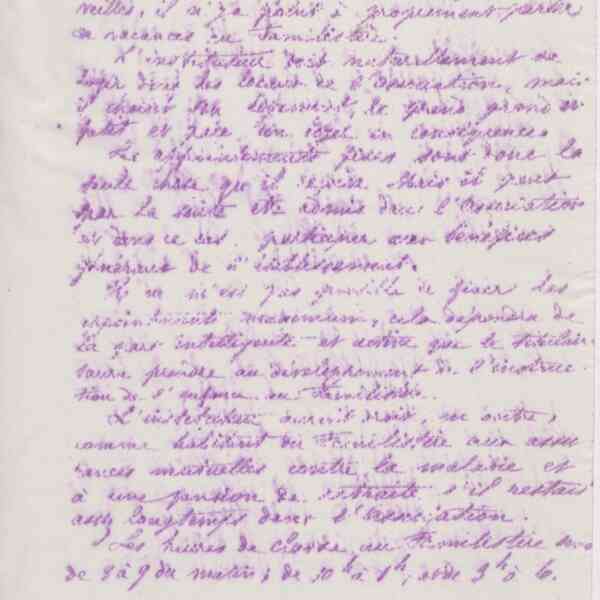 veilles, il n'y a point à proprement parler
de vacances au Familistère.
L'instituteur doit naturellement se
loger dans les locaux de l'Association, mais
il choisit son logement, le prend grand ou
petit et paie un loyer en conséquence.
Les appointements fixes sont donc la
seule chose qu'il reçoive. Mais il peut
par la suite être admis dans l'Association
et dans ce cas participer aux bénéfices
généraux de l'établissement.
Il ne m'est pas possible de fixer les
appointements maximum, cela dépendra de
la part intelligente et active que le titulaire
saura prendre au développement de l'instruc-
tion de l'enfance au Familistère.
L'instituteur aurait droit, en outre,
comme habitant du Familistère aux assu
rances mutuelles contre la maladie et
à une pension de retraite s'il restait
assez longtemps dans l'Association.
Les heures de classe au Familistère sont
de 8 à 9 du matin; de 10h à 1h, et de 3h à 6.